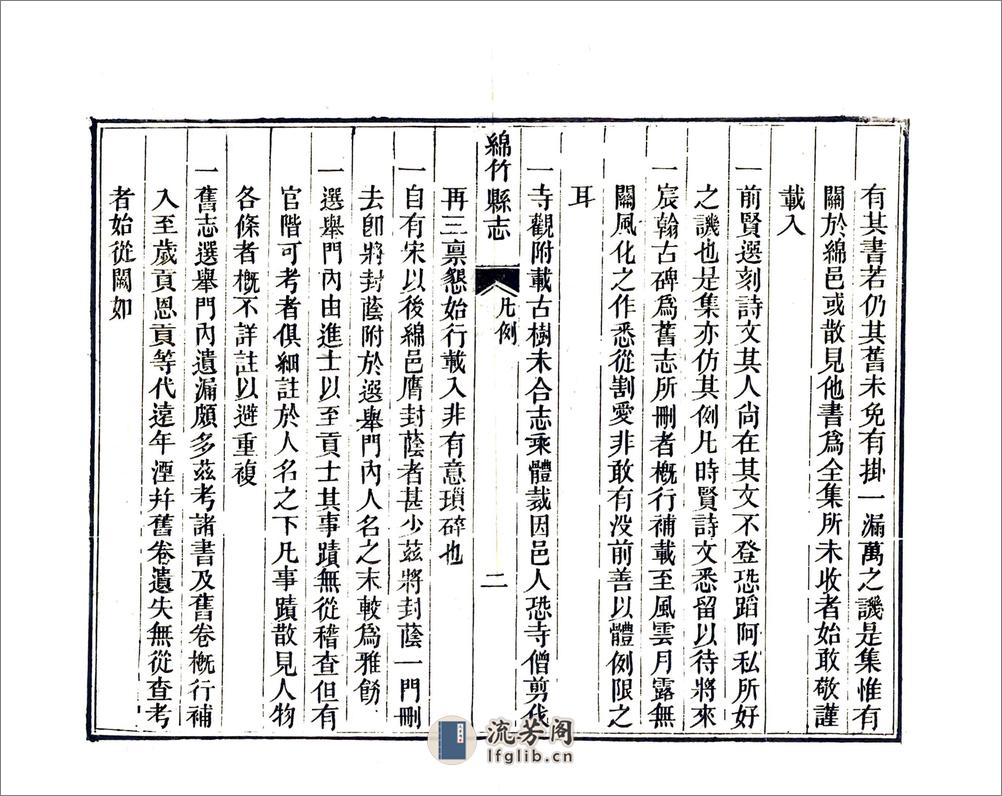 有其書若仍其舊未免有掛一漏萬之譏是集惟有
關於綿邑或散見他書爲全集所未收者始敢敬謹
載入
一前賢選刻詩文其人尚在其文不登恐蹈阿私所好
之譏也是集亦仿其例凡時賢詩文悉留以待將來
一宸翰古碑爲舊志所刪者槪行補載至風雲月露無
關風化之作悉從割愛非敢有没前善以體例限之
耳
一寺觀附載古樹未合志乘體裁因邑人恐寺僧剪伐
綿竹縣志 凡例 二
再三禀懇始行載入非有意瑣碎也
一自有宋以後綿邑膺封蔭者甚少茲將封蔭一門刪
去卽將封蔭附於選舉門內人名之末較爲雅飭
一選舉門內由進士以至貢士其事蹟無從稽查但有
官階可考者俱細註於人名之下凡事蹟散見人物
各條者槪不詳註以避重複
一舊志選舉門內遺漏頗多茲考諸書及舊卷槪行補
入至歲貢恩貢等代遠年湮幷舊卷遺失無從查考
者始從闕如
流芳阁
lfglib.cn